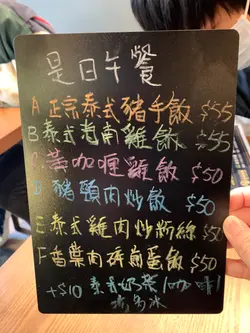 是日午餐
A 正宗泰式豬手飯 $55
B 泰式海南雞飯 $55
C 黃咖喱雞飯 $50
D 豬頸肉炒飯 $50
E 泰式雞肉炒粉絲 $50
F 香葉肉碎煎蛋飯 $50
+$10 泰式奶茶/咖啡/